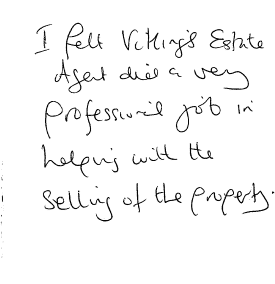 I felt Vitling's Estate
Agent did a very
professional job in
helping with the
selling of the property.